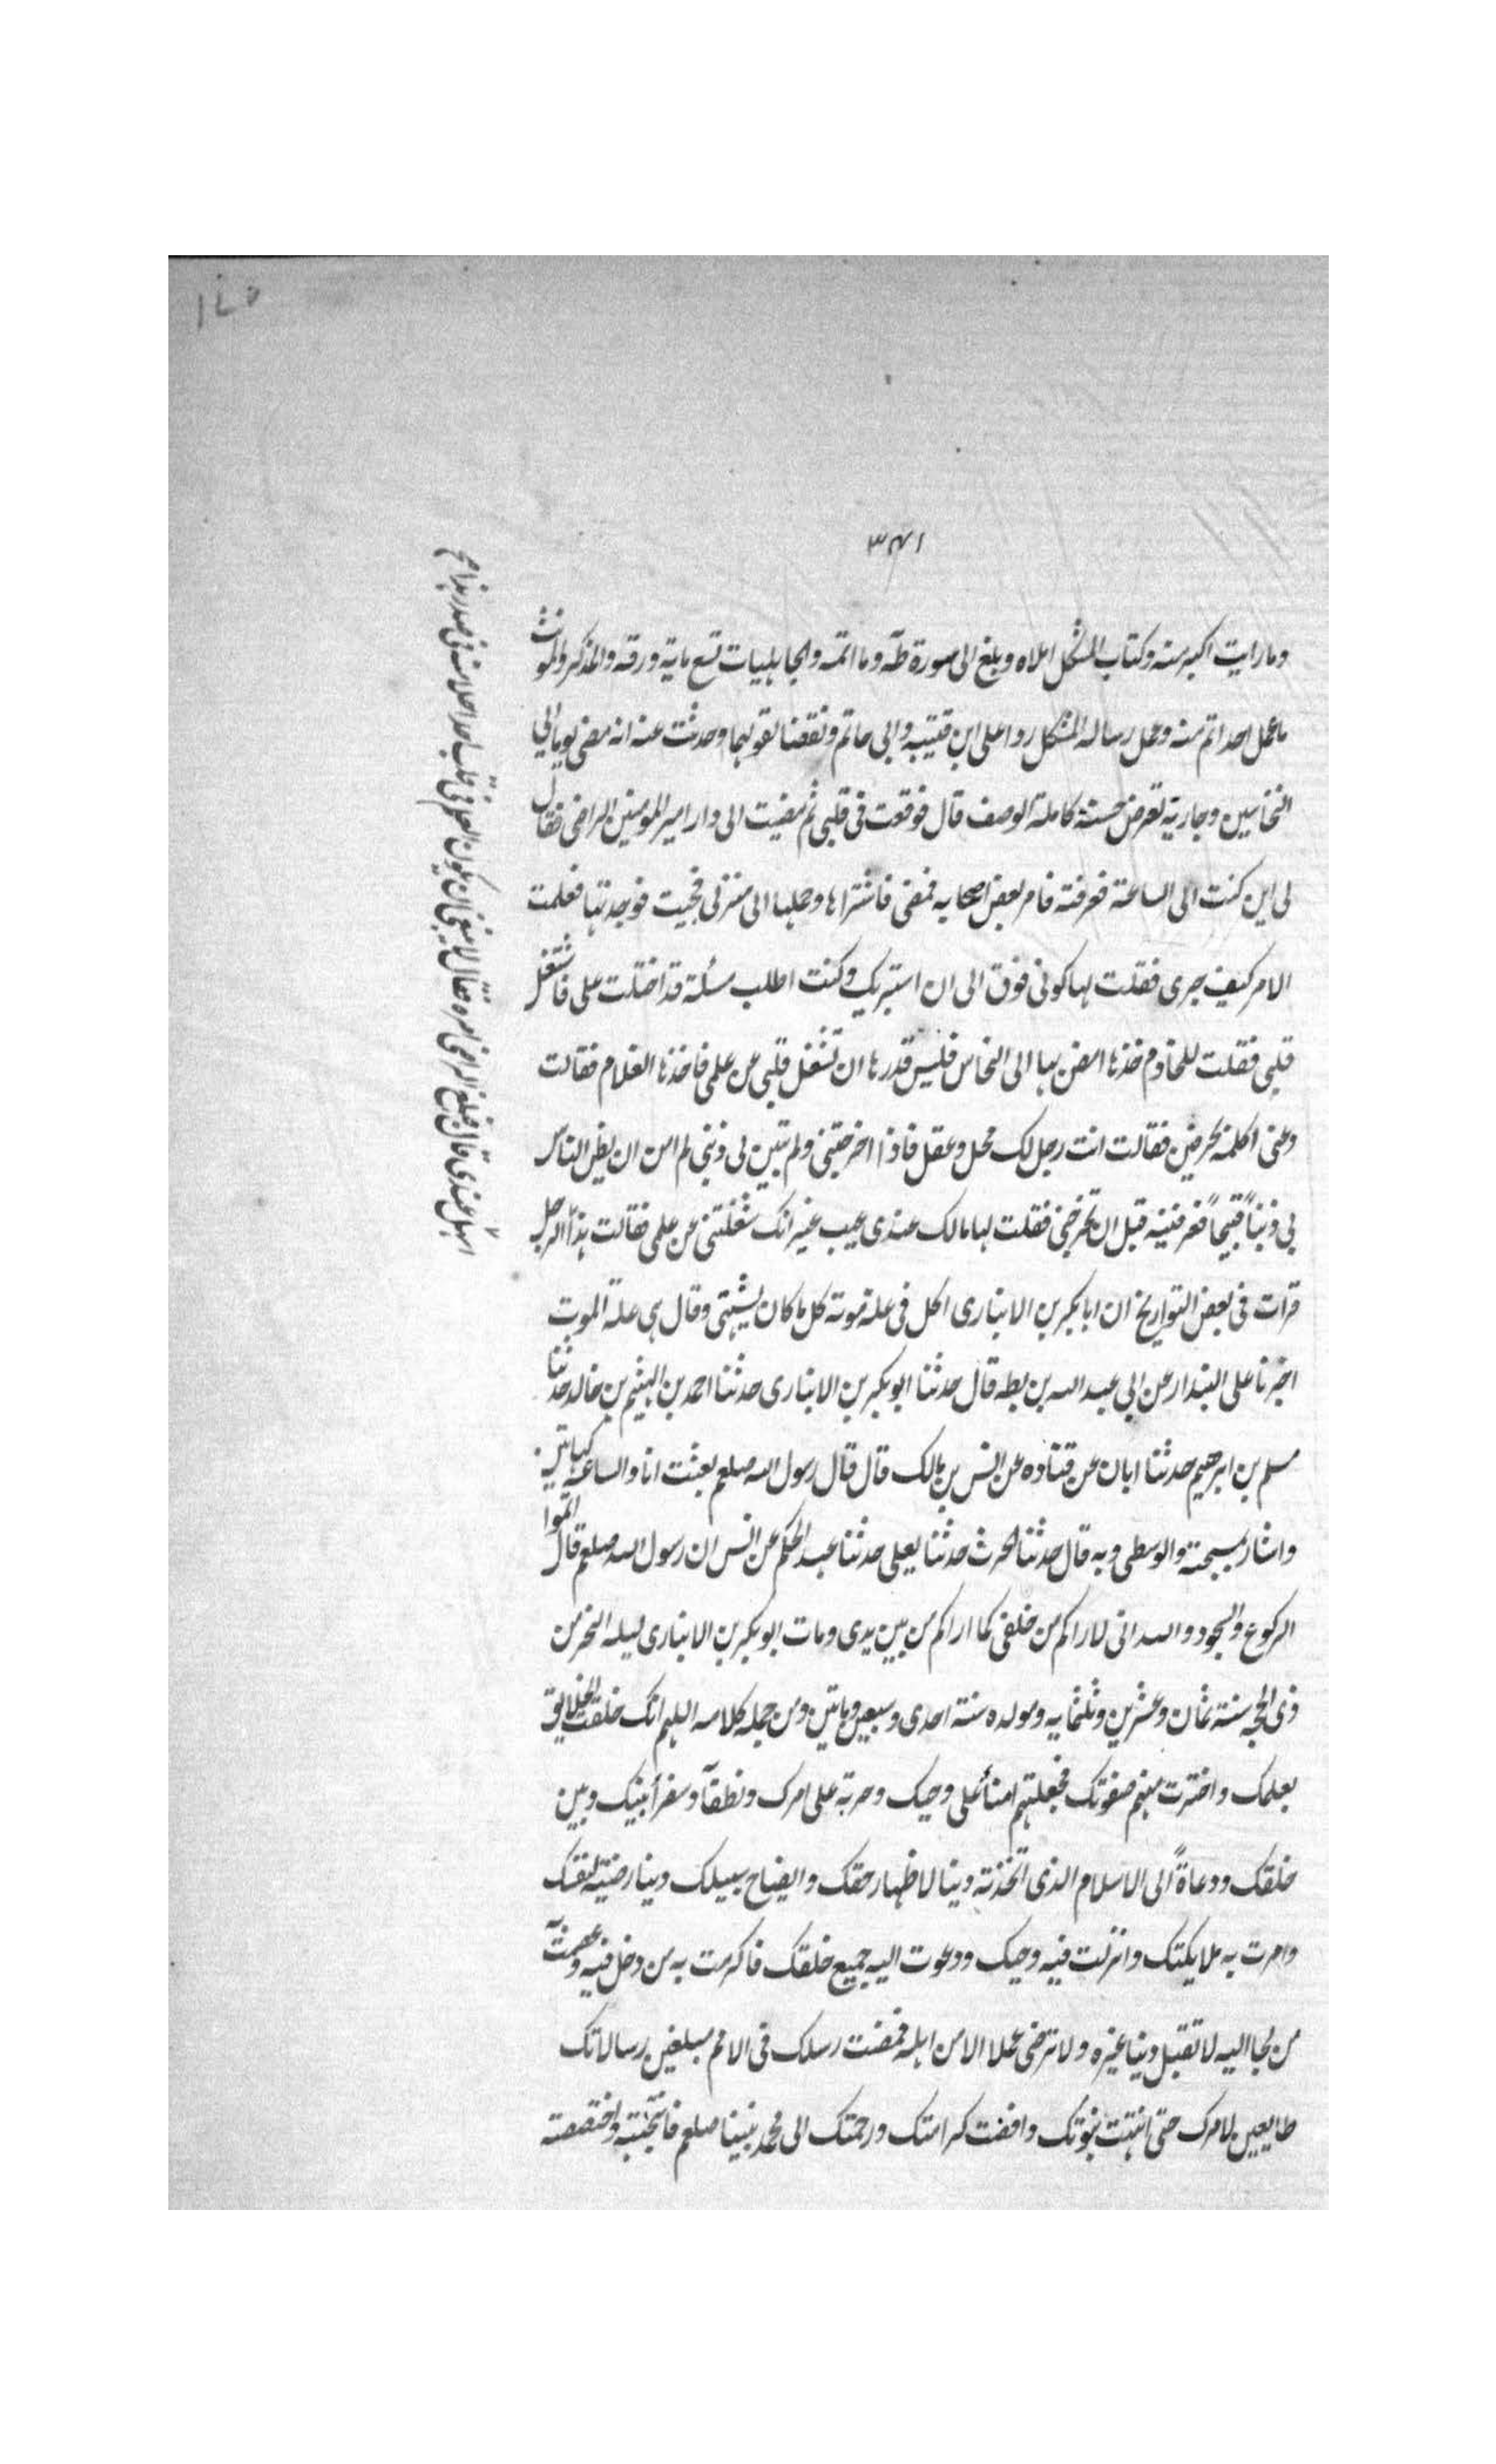 ١٧٥
٣٤١
وما رايت اكبر منه وكتاب المشكل املاه وبلغ الى سورة طه وما اتمه والجاهليات تسع ماية ورقه والمذكر والمونث
ما عمل احد اتم منه وعمل رساله المشكل ردا على ابن قتيبه وابي حاتم ونقضا لقولهما وحدثت عنه انه مضى يوما الى
النخاسين وجارية تعرض حسنة كاملة الوصف قال فوقعت فى قلبى ثم مضيت الى دار امير المومنين الراضى فقال
لى اين كنت الى الساعة فعرفته فامر بعض اصحابه فمضى فاشتراها وحملها الى منزلى فجيت فوجدتها فعلمت
الامر كيف جرى فقلت لها كونى فوق الى ان استبريك وكنت اطلب مسئلة قد اختلت على فاشتغل
قلبى فقلت للخادم خذها امض بها الى النخاس فليس قدرها ان تشغل قلبى عن علمى فاخذها الغلام فقالت
دعنى اكلمه بحرفين فقالت انت رجل لك محل وعقل فاذا اخرجتنى ولم تبين لى ذنبى لم امن ان يظن الناس
بى ذنباً قبيحاً فعرفنيه قبل ان تخرجنى فقلت لها مالك عندى عيب غير انك شغلتنى عن علمى فقالت هذا الرجل
قرات فى بعض التواريخ ان ابا بكر بن الانبارى اكل فى علة موته كل ما كان يشتهى وقال هى علة الموت
اخبرنا على البندار عن ابي عبد الله بن بطه قال حدثنا ابو بكر بن الانبارى حدثنا احمد بن الهيثم بن خالد حدثنا
مسلم بن ابرهيم حدثنا ابان عن قتاده عن انس بن مالك قال قال رسول الله صلعم بعثت انا والساعة كهاتين
واشار بمسبحته والوسطى وبه قال حدثنا الحرث حدثنا يعلى حدثنا عبد الحكم عن انس ان رسول الله صلعم قال اتموا
الركوع والسجود والله انى لاراكم من خلفى كما اراكم من بين يدى ومات ابو بكر بن الانبارى ليله النحر من
ذى الحجه سنة ثمان وعشرين وثلثمايه ومولده سنة احدى وسبعين وماتين ومن جمله كلامه اللهم انك خلقت الخلايق
بعلمك واخترت منهم صفوتك فجعلتهم امناً على وحيك وحربة على امرك ونطقاً وسفرأ بينك وبين
خلقك ودعاةً الى الاسلام الذى اتخذته دينا لاظهار حقك وايضاح سبيلك دينا رضيته لنفسك
وامرت به ملايكتك وانزلت فيه وحيك ودعوت اليه جميع خلقك فاكرمت به من دخل فيه وعصمت
من لجا اليه لا تقبل دينا غيره ولا ترضى عملا الا من اهله فمضت رسلك فى الامم مبلغين رسالاتك
طايعين لامرك حتى انتهت نبوتك وافضت كرامتك ورحمتك الى محمد نبينا صلعم فانتجبته واختصصته
اسهل عندى قال فبلغ الراضى امره فقال لا ينبغى ان يكون العلم فى قلب احد احلا منه فى صدر هذا صح